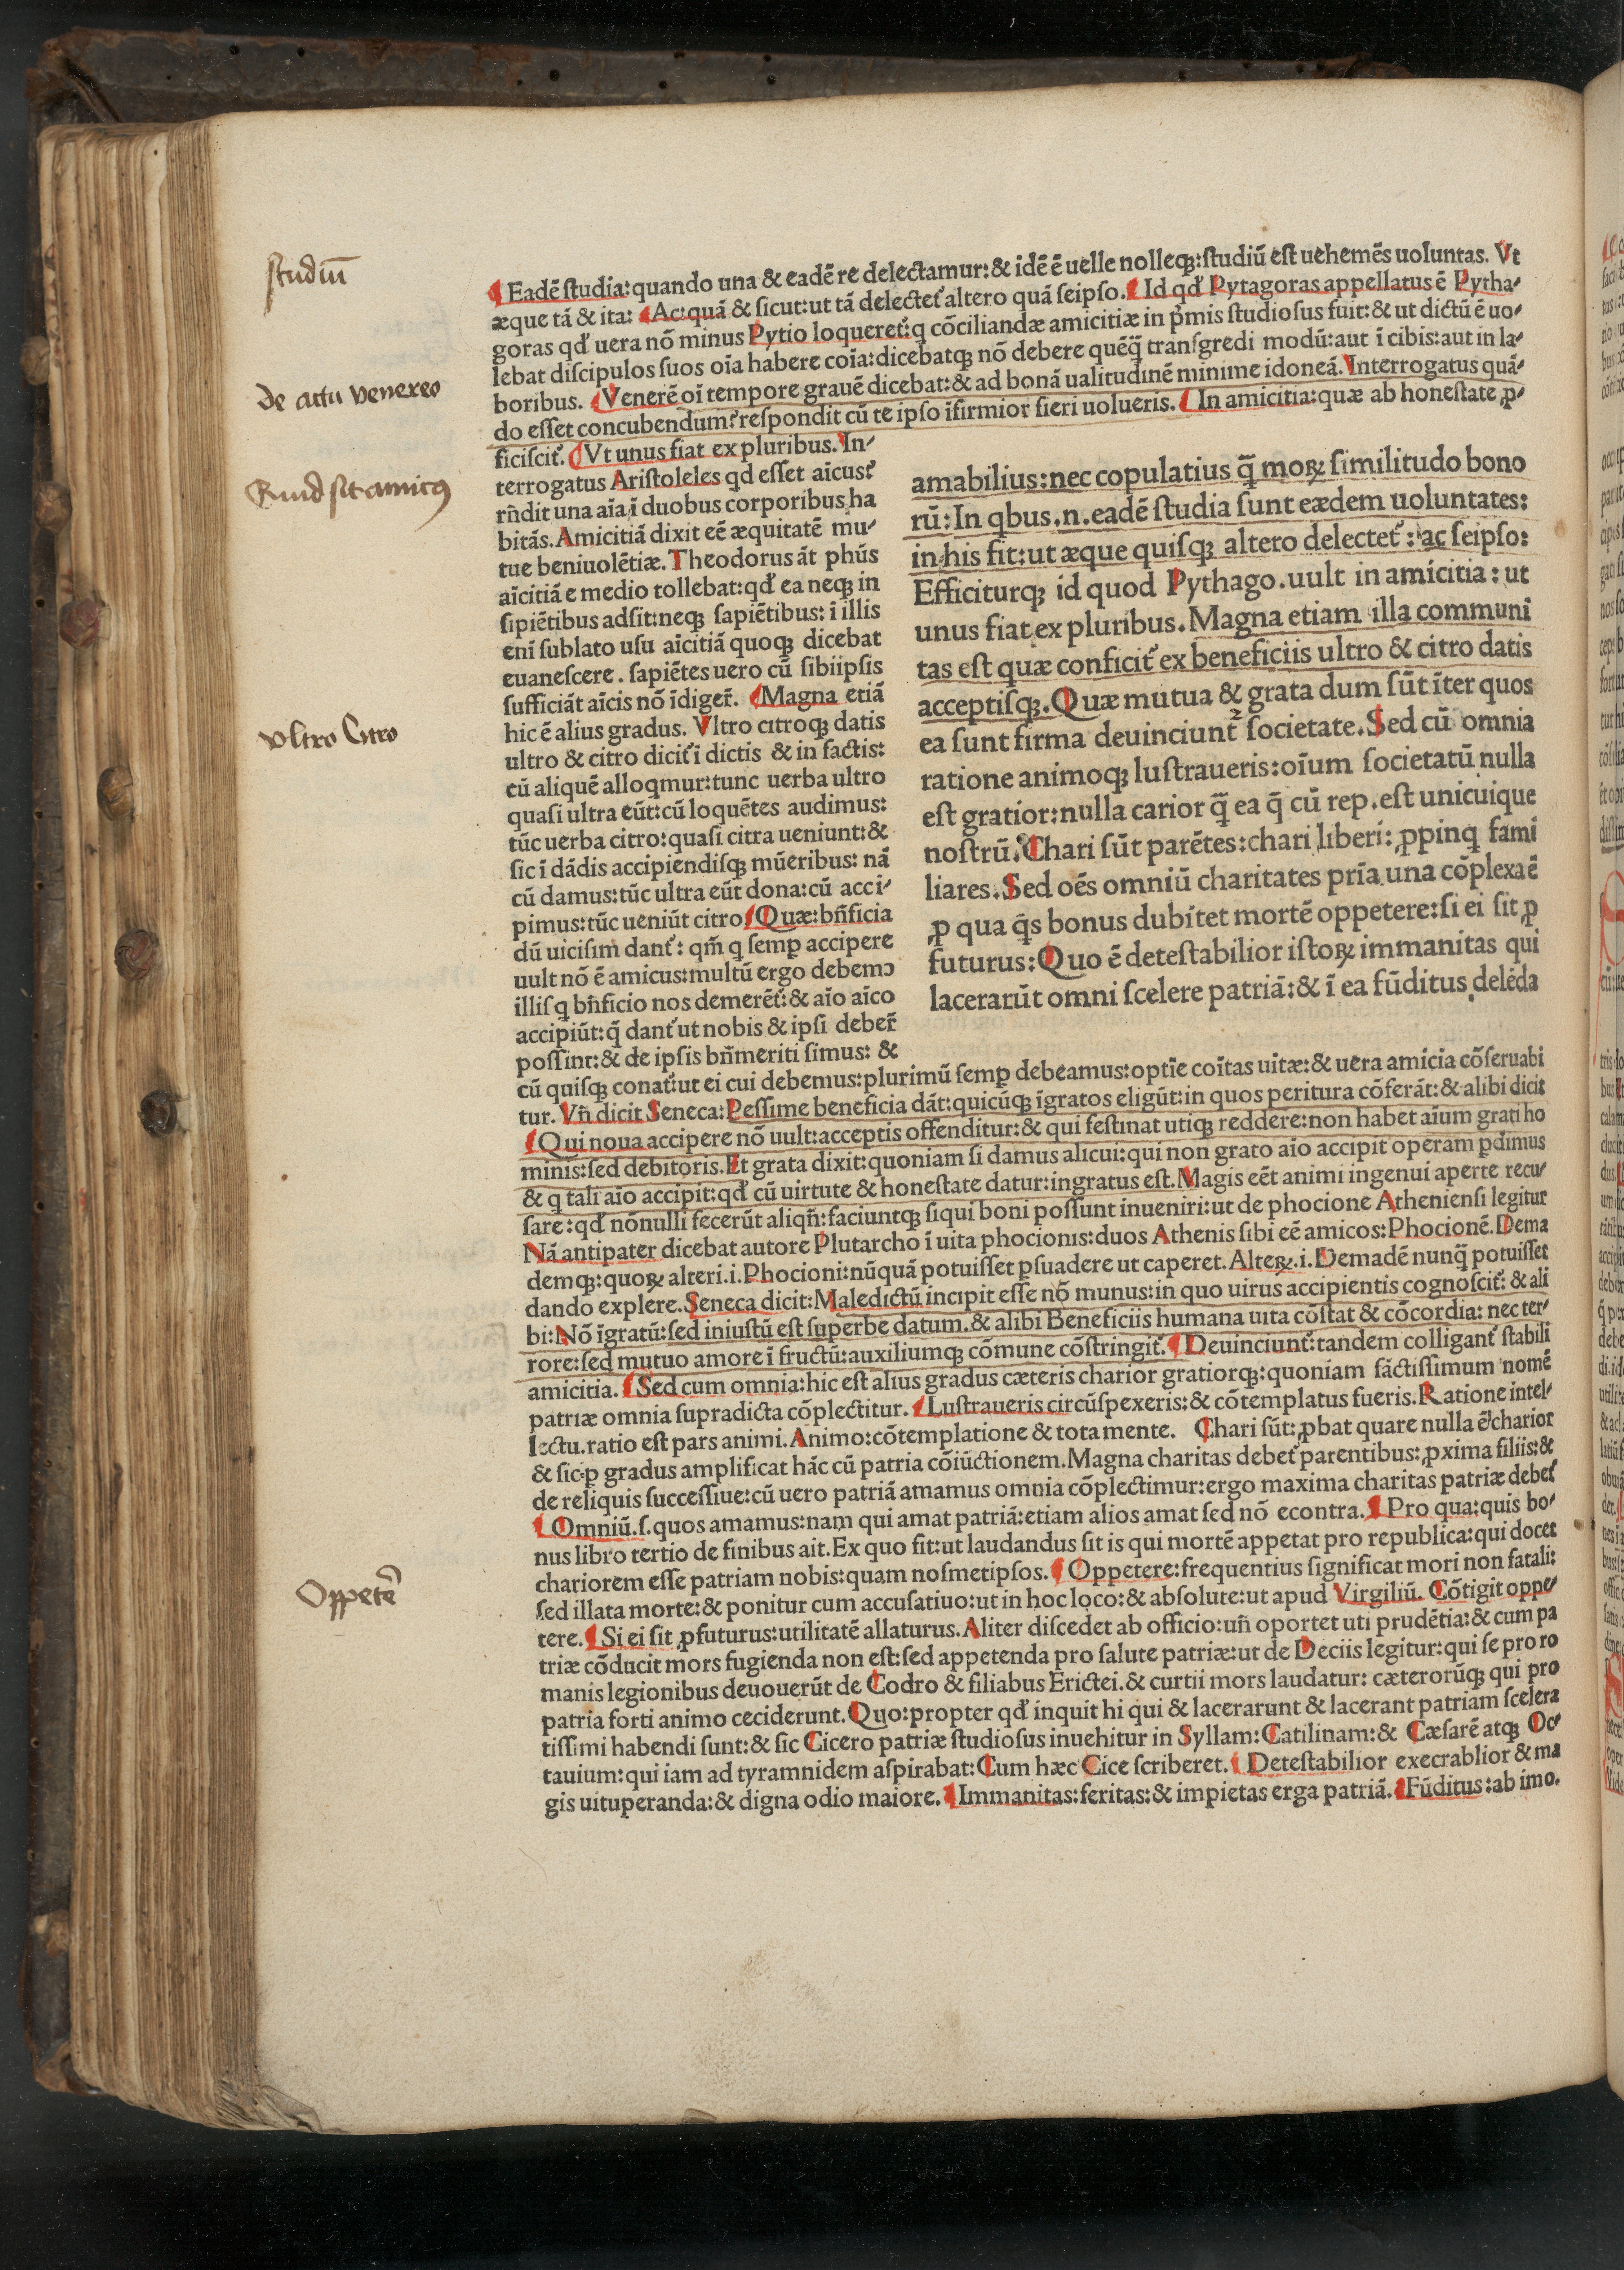 studiū
¶ Eadē ſtudia: quando una & eadē re delectamur: & idē ē uelle nolleqꝫ: ſtudiū eſt uehemēs uoluntas. Vt
æque tā & ita: ¶ Ac: quā & ſicut: ut tā delectet᷑ altero quā ſeipſo. ¶ Id qđ Pytagoras appellatus ē Pytha⸗
goras qđ uera nō minus Pytio loqueret᷑: q cōciliandæ amicitiæ in pͥmis ſtudioſus fuit: & ut dictū ē uo⸗
lebat diſcipulos ſuos oīa habere coīa: dicebatqꝫ nō debere quēq̄ tranſgredi modū: aut ī cibis: aut in la⸗
boribus. ¶ Venerē oī tempore grauē dicebat: & ad bonā ualitudinē minime idoneā. Interrogatus quā⸗
do eſſet concubendum? reſpondit cū te ipſo īfirmior fieri uolueris. ¶ In amicitia: quæ ab honeſtate ꝓ⸗
ficiſcit᷑. ¶ Vt unus fiat ex pluribus. In⸗
de actu venereo
Quid sit amicꝰ
vltro Citro
Oppetē
terrogatus Ariſtoleles qd eſſet aīcus?
rn̄dit una aīa ī duobus corporibus ha
bitās. Amicitiā dixit eē æquitatē mu⸗
tue beniuolētiæ. Theodorus āt phūs
aīcitiā e medio tollebat: qđ ea neqꝫ in
ſipiētibus adſit: neqꝫ ſapiētibus: ī illis
enī ſublato uſu aīcitiā quoqꝫ dicebat
euaneſcere. ſapiētes uero cū ſibiipſis
ſufficiāt aīcis nō īdiger̄. ¶ Magna etiā
hic ē alius gradus. Vltro citroqꝫ datis
ultro & citro dicit᷑ ī dictis & in factis:
cū aliquē alloqmur: tunc uerba ultro
quaſi ultra eūt: cū loquētes audimus:
tūc uerba citro: quaſi citra ueniunt: &
ſic ī dādis accipiendiſqꝫ mūeribus: nā
cū damus: tūc ultra eūt dona: cū acci⸗
pimus: tūc ueniūt citro ¶ Quæ: bn̄ficia
dū uiciſim dant᷑: qm̄ q ſemꝑ accipere
uult nō ē amicus: multū ergo debemꝰ
illiſ q bn̄ficio nos demerēt᷑: & aīo aīco
accipiūt: q̄ dant᷑ ut nobis & ipſi deber̄
poſſint: & de ipſis bn̄meriti ſimus: &
amabilius: nec copulatius q̄ moꝝ ſimilitudo bono
rū: In qbus. n. eadē ſtudia ſunt eædem uoluntates:
in his fit: ut æque quiſqꝫ altero delectet᷑: ac ſeipſo:
Efficiturqꝫ id quod Pythago. uult in amicitia: ut
unus fiat ex pluribus. Magna etiam illa communi
tas eſt quæ conficit᷑ ex beneficiis ultro & citro datis
acceptiſqꝫ. Quæ mutua & grata dum ſūt īter quos
ea ſunt firma deuinciunt᷑ ſocietate. Sed cū omnia
ratione animoqꝫ luſtraueris: oīum ſocietatū nulla
eſt gratior: nulla carior q̄ ea q̄ cū rep. eſt unicuique
noſtrū. Chari ſūt parētes: chari liberi: ꝓpinq fami
liares. Sed oēs omniū charitates prīa una cōplexa ē
ꝓ qua q̄s bonus dubitet mortē oppetere: ſi ei ſit ꝓ
futurus: Quo ē deteſtabilior iſtoꝝ immanitas qui
lacerarūt omni ſcelere patriā: & ī ea fūditus delēda
cū quiſqꝫ conat᷑: ut ei cui debemus: plurimū ſemꝑ debeamus: optīe coītas uitæ: & uera amicia cōſeruabi
tur. Vn̄ dicit Seneca: Peſſime beneficia dāt: quicūqꝫ īgratos eligūt: in quos peritura cōferāt: & alibi dicit
¶ Qui noua accipere nō uult: acceptis offenditur: & qui feſtinat utiqꝫ reddere: non habet aīum grati ho
minis: ſed debitoris. Et grata dixit: quoniam ſi damus alicui: qui non grato aīo accipit operam ꝑdimus
& q tali aīo accipit: qđ cū uirtute & honeſtate datur: ingratus eſt. Magis eēt animi ingenui aperte recu⸗
ſare: qđ nōnulli fecerūt aliqn̄: faciuntqꝫ ſiqui boni poſſunt inueniri: ut de phocione Athenienſi legitur
Nā antipater dicebat autore Plutarcho ī uita phocionis: duos Athenis ſibi eē amicos: Phocionē. Dema
demqꝫ: quoꝝ alteri. i. Phocioni: nūquā potuiſſet ꝑſuadere ut caperet. Alteꝝ. i. Demadē nunq̄ potuiſſet
dando explere. Seneca dicit: Maledictū incipit eſſe nō munus: in quo uirus accipientis cognoſcit᷑: & ali
bi: Nō īgratū: ſed iniuſtū eſt ſuperbe datum. & alibi Beneficiis humana uita cōſtat & cōcordia: nec ter⸗
rore: ſed mutuo amore ī fructū: auxiliumqꝫ cōmune cōſtringit᷑. ¶ Deuinciunt᷑: tandem colligant᷑ ſtabili
amicitia. ¶ Sed cum omnia: hic eſt alius gradus cæteris charior gratiorqꝫ: quoniam ſāctiſſimum nomē
patriæ omnia ſupradicta cōplectitur. ¶ Luſtraueris circūſpexeris: & cōtemplatus fueris. Ratione intel⸗
lectu. ratio eſt pars animi. Animo: cōtemplatione & tota mente. Chari ſūt: ꝓbat quare nulla ē charior
& ſic ꝑ gradus amplificat hāc cū patria cōiūctionem. Magna charitas debet᷑ parentibus: ꝓxima filiis: &
de reliquis ſucceſſiue: cū uero patriā amamus omnia cōplectimur: ergo maxima charitas patriæ debet᷑
¶ Omniū. ſ. quos amamus: nam qui amat patriā: etiam alios amat ſed nō econtra. ¶ Pro qua: quis bo⸗
nus libro tertio de finibus ait. Ex quo fit: ut laudandus ſit is qui mortē appetat pro republica: qui docet
chariorem eſſe patriam nobis: quam noſmetipſos. ¶ Oppetere: frequentius ſignificat mori non fatali:
ſed illata morte: & ponitur cum accuſatiuo: ut in hoc loco: & abſolute: ut apud Virgiliū. Cōtigit oppe⸗
tere. ¶ Si ei ſit ꝓfuturus: utilitatē allaturus. Aliter diſcedet ab officio: un̄ oportet uti prudētia: & cum pa
triæ cōducit mors fugienda non eſt: ſed appetenda pro ſalute patriæ: ut de Deciis legitur: qui ſe pro ro
manis legionibus deuouerūt de Codro & filiabus Erictei. & curtii mors laudatur: cæterorūqꝫ qui pro
patria forti animo ceciderunt. Quo: propter qđ inquit hi qui & lacerarunt & lacerant patriam ſcelera
tiſſimi habendi ſunt: & ſic Cicero patriæ ſtudioſus inuehitur in Syllam: Catilinam: & Cæſarē atqꝫ Oc⸗
tauium: qui iam ad tyramnidem aſpirabat: Cum hæc Cice ſcriberet. ¶ Deteſtabilior execrablior & ma
gis uituperanda: & digna odio maiore. ¶ Immanitas: feritas: & impietas erga patriā. ¶ Fūditus: ab imo.